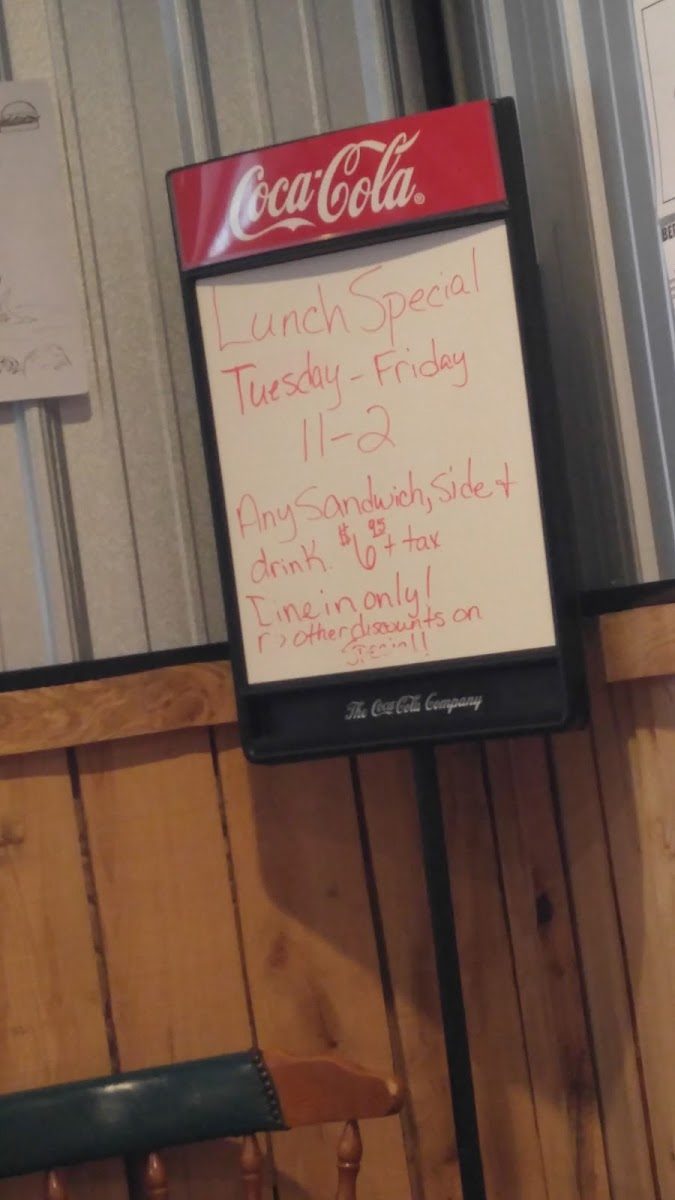 Coca-Cola
Lunch Special
Tuesday - Friday
11-2
Any Sandwich, Side +
drink. $6 95 + tax
ine in only!
other discounts on
The Coca-Cola Company